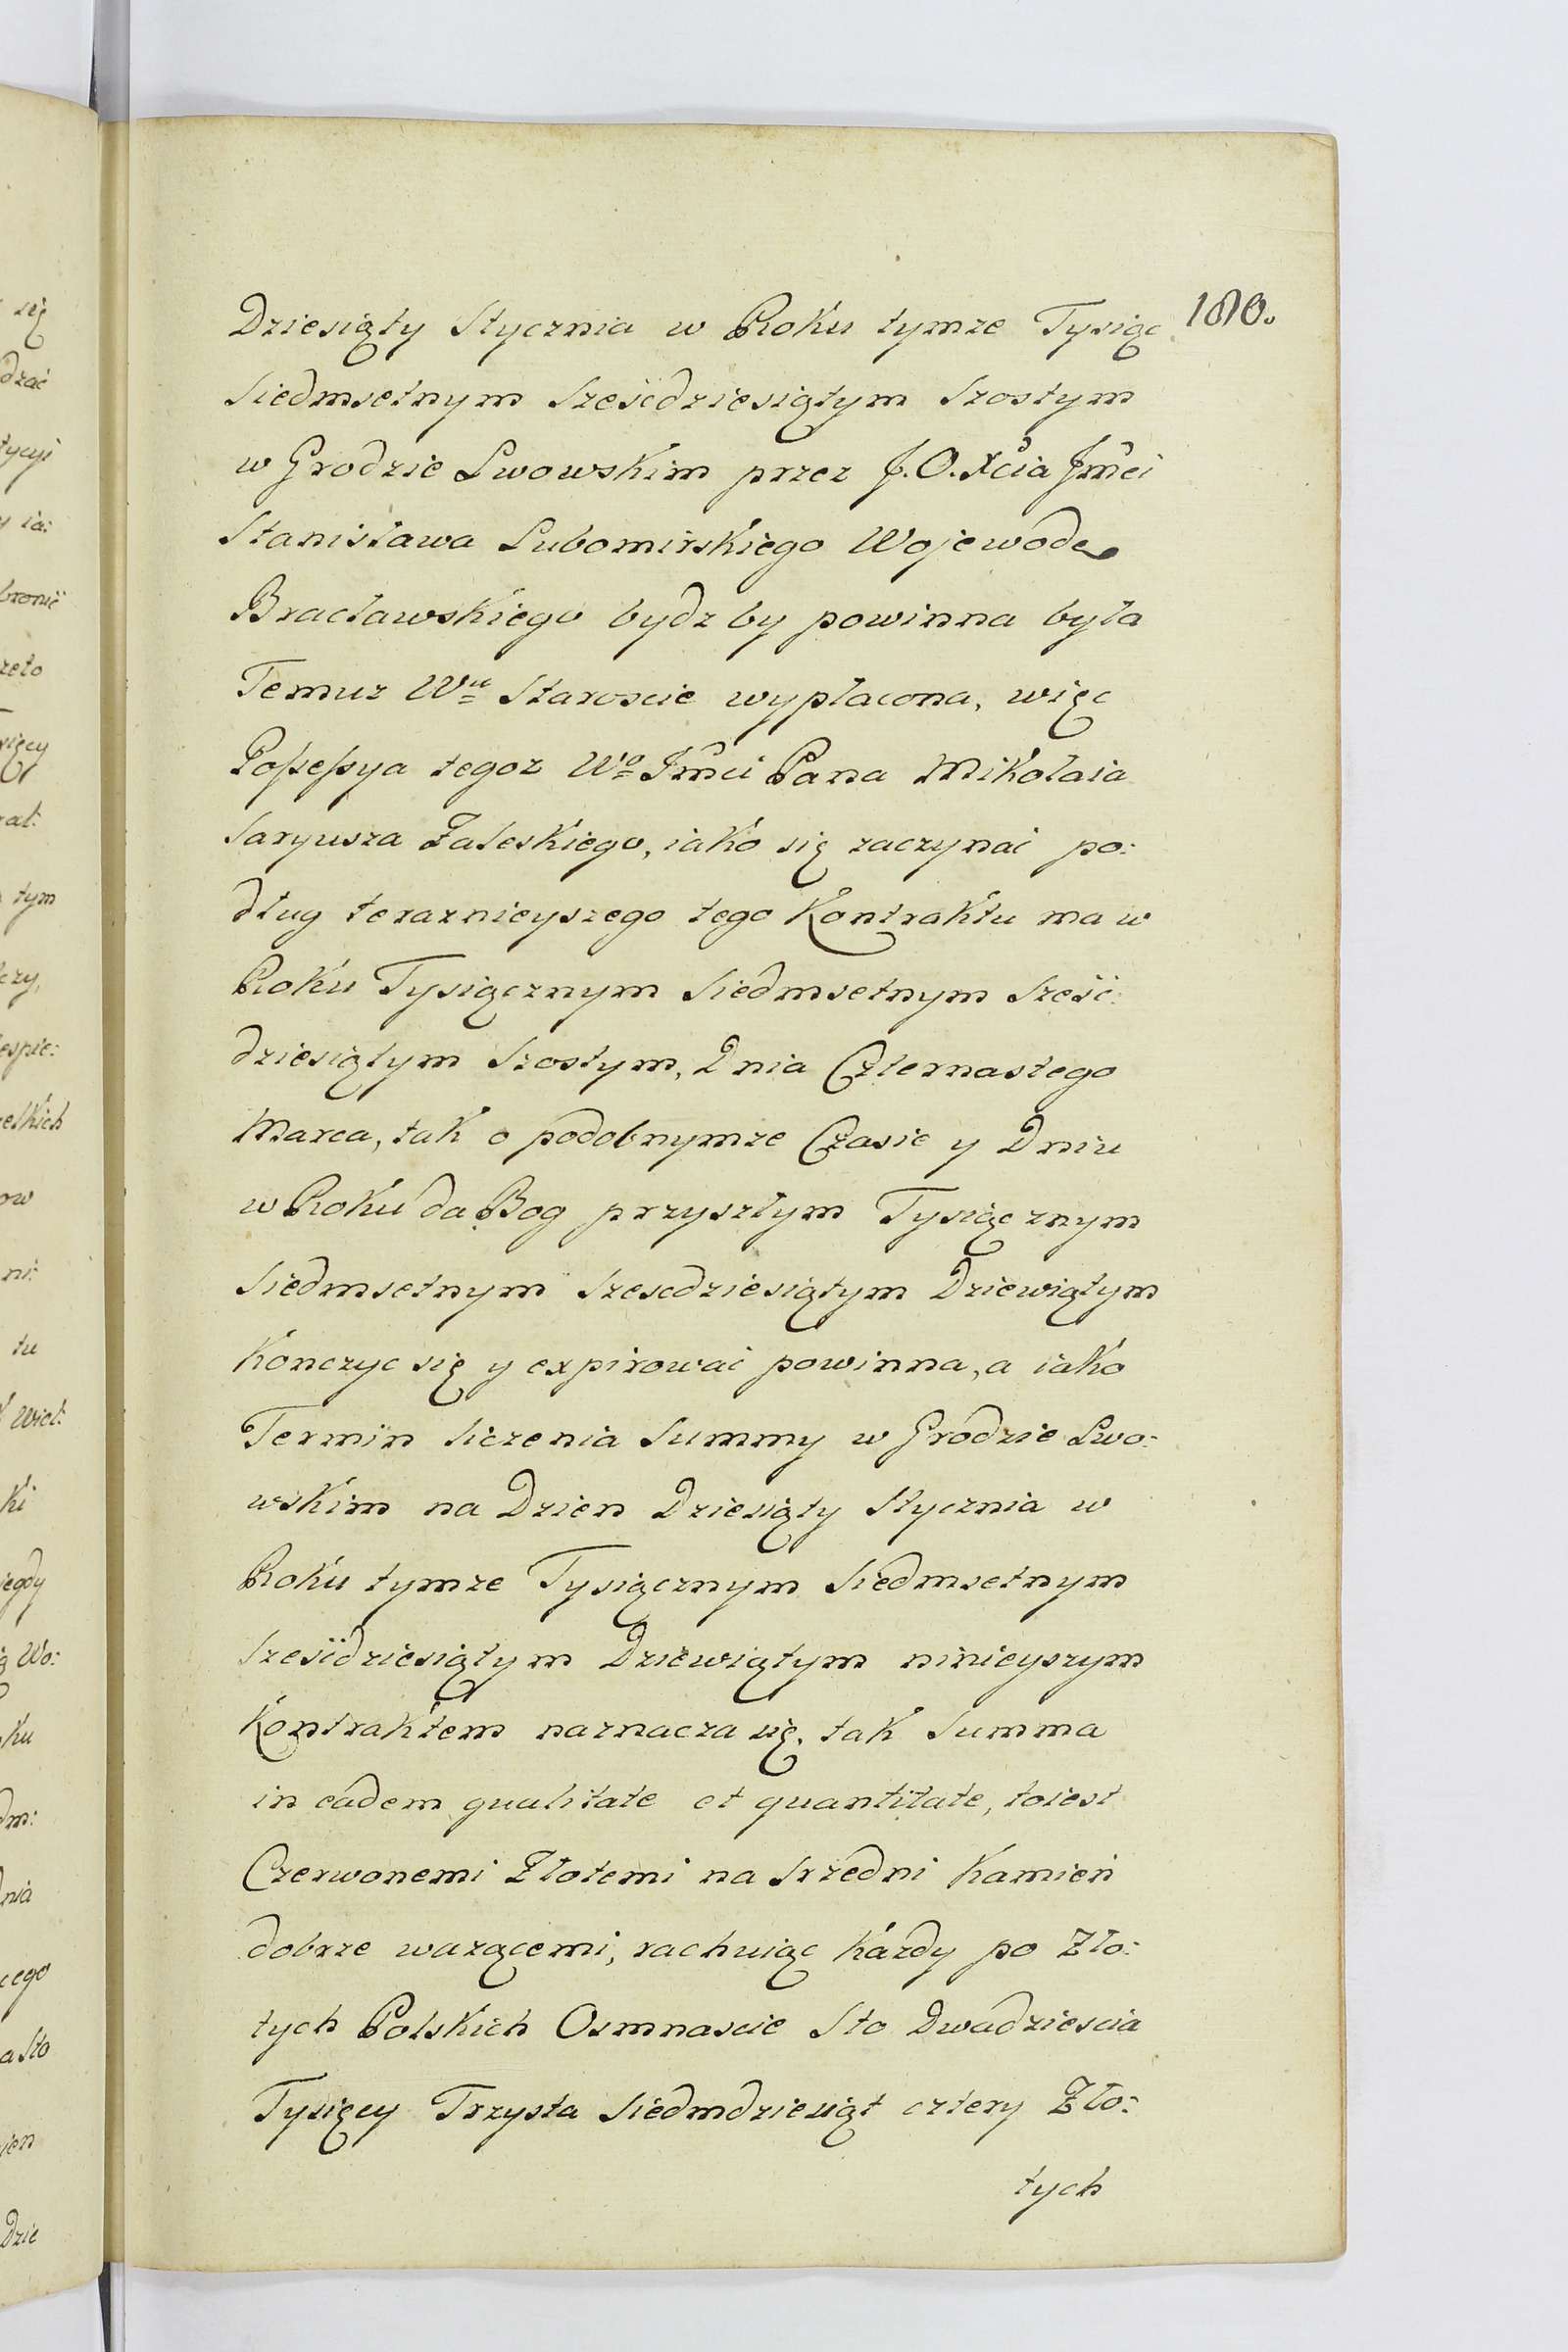 180.
Dziesiąty Stycznia w Roku tymze Tysiąc
Siedmsetnym Sześćdziesiątym Szostym
w Grodzie Lwowskim przez J. O. Xcia Jmci
Stanisława Lubomirskiego Wojewodę
Bracławskiego bydz by powinna była
Temuz Wu Staroscie wypłacona, więc
Possessya tegoz Wo Jmci Pana Mikołaia
Saryusza Zaleskiego, iako się zaczynać po:
dług teraznieyszego tego Kontraktu ma w
Roku Tysiącznym Siedmsetnym Sześć:
dziesiątym Szostym, Dnia Czternastego
Marca, tak o podobnymze Czasie y Dniu
w Roku da Bog przyszłym Tysiącznym
Siedmsetnym Szescdziesiątym Dziewiątym
konczyc się y expirować powinna, a iako
Termin liczenia Summy w Grodzie Lwo:
wskim na Dzien Dziesiąty Stycznia w
Roku tymze Tysiącznym Siedmsetnym
Sześćdziesiątym Dziewiątym ninieyszym
Kontraktem naznacza się, tak Summa
in eadem qualitate et quantitate, toiest
Czerwonemi Złotemi na Srzedni Kamień
dobrze wazącemi, rachuiąc każdy po Zło:
tych Polskich Osmnascie Sto Dwadziescia
Tysięcy Trzysta Siedmdziesiąt cztery Zło:
tych
się
dzać
tycyi
y ia:
bronić
zeto
więcy
rat:
tym
czy,
espie:
elkich
ow
ni:
tu
wiel:
ki
iegdy
Wo:
ku
dm:
dnia
cego
a Sto
ien
Dzie